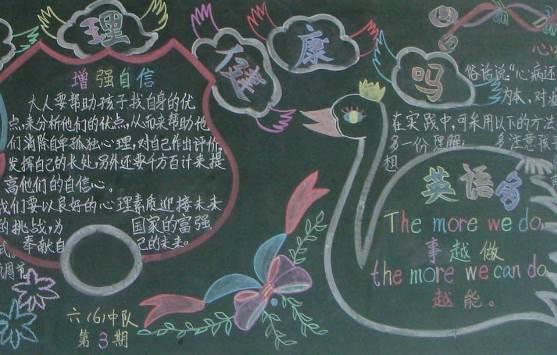 理
健
康
吗
增强自信
大人要帮助孩子找自身的优
点,来分析他们的优点,从而来帮助他
们消除自卑孤独心理,对自己作出评价,
发挥自己的长处,另外还要千方百计来提
高他们的自信心。
我们要以良好的心理素质迎接未来
的挑战,为 国家的富强
奉献自 己的未来。
六(6)中队
第3期
心
俗话说:"心病还
为本,对
在实践中,可采用以下的方法
多一份理解; 多注意孩
想
英语
The more we do,
事越做
the more we can do
越能。